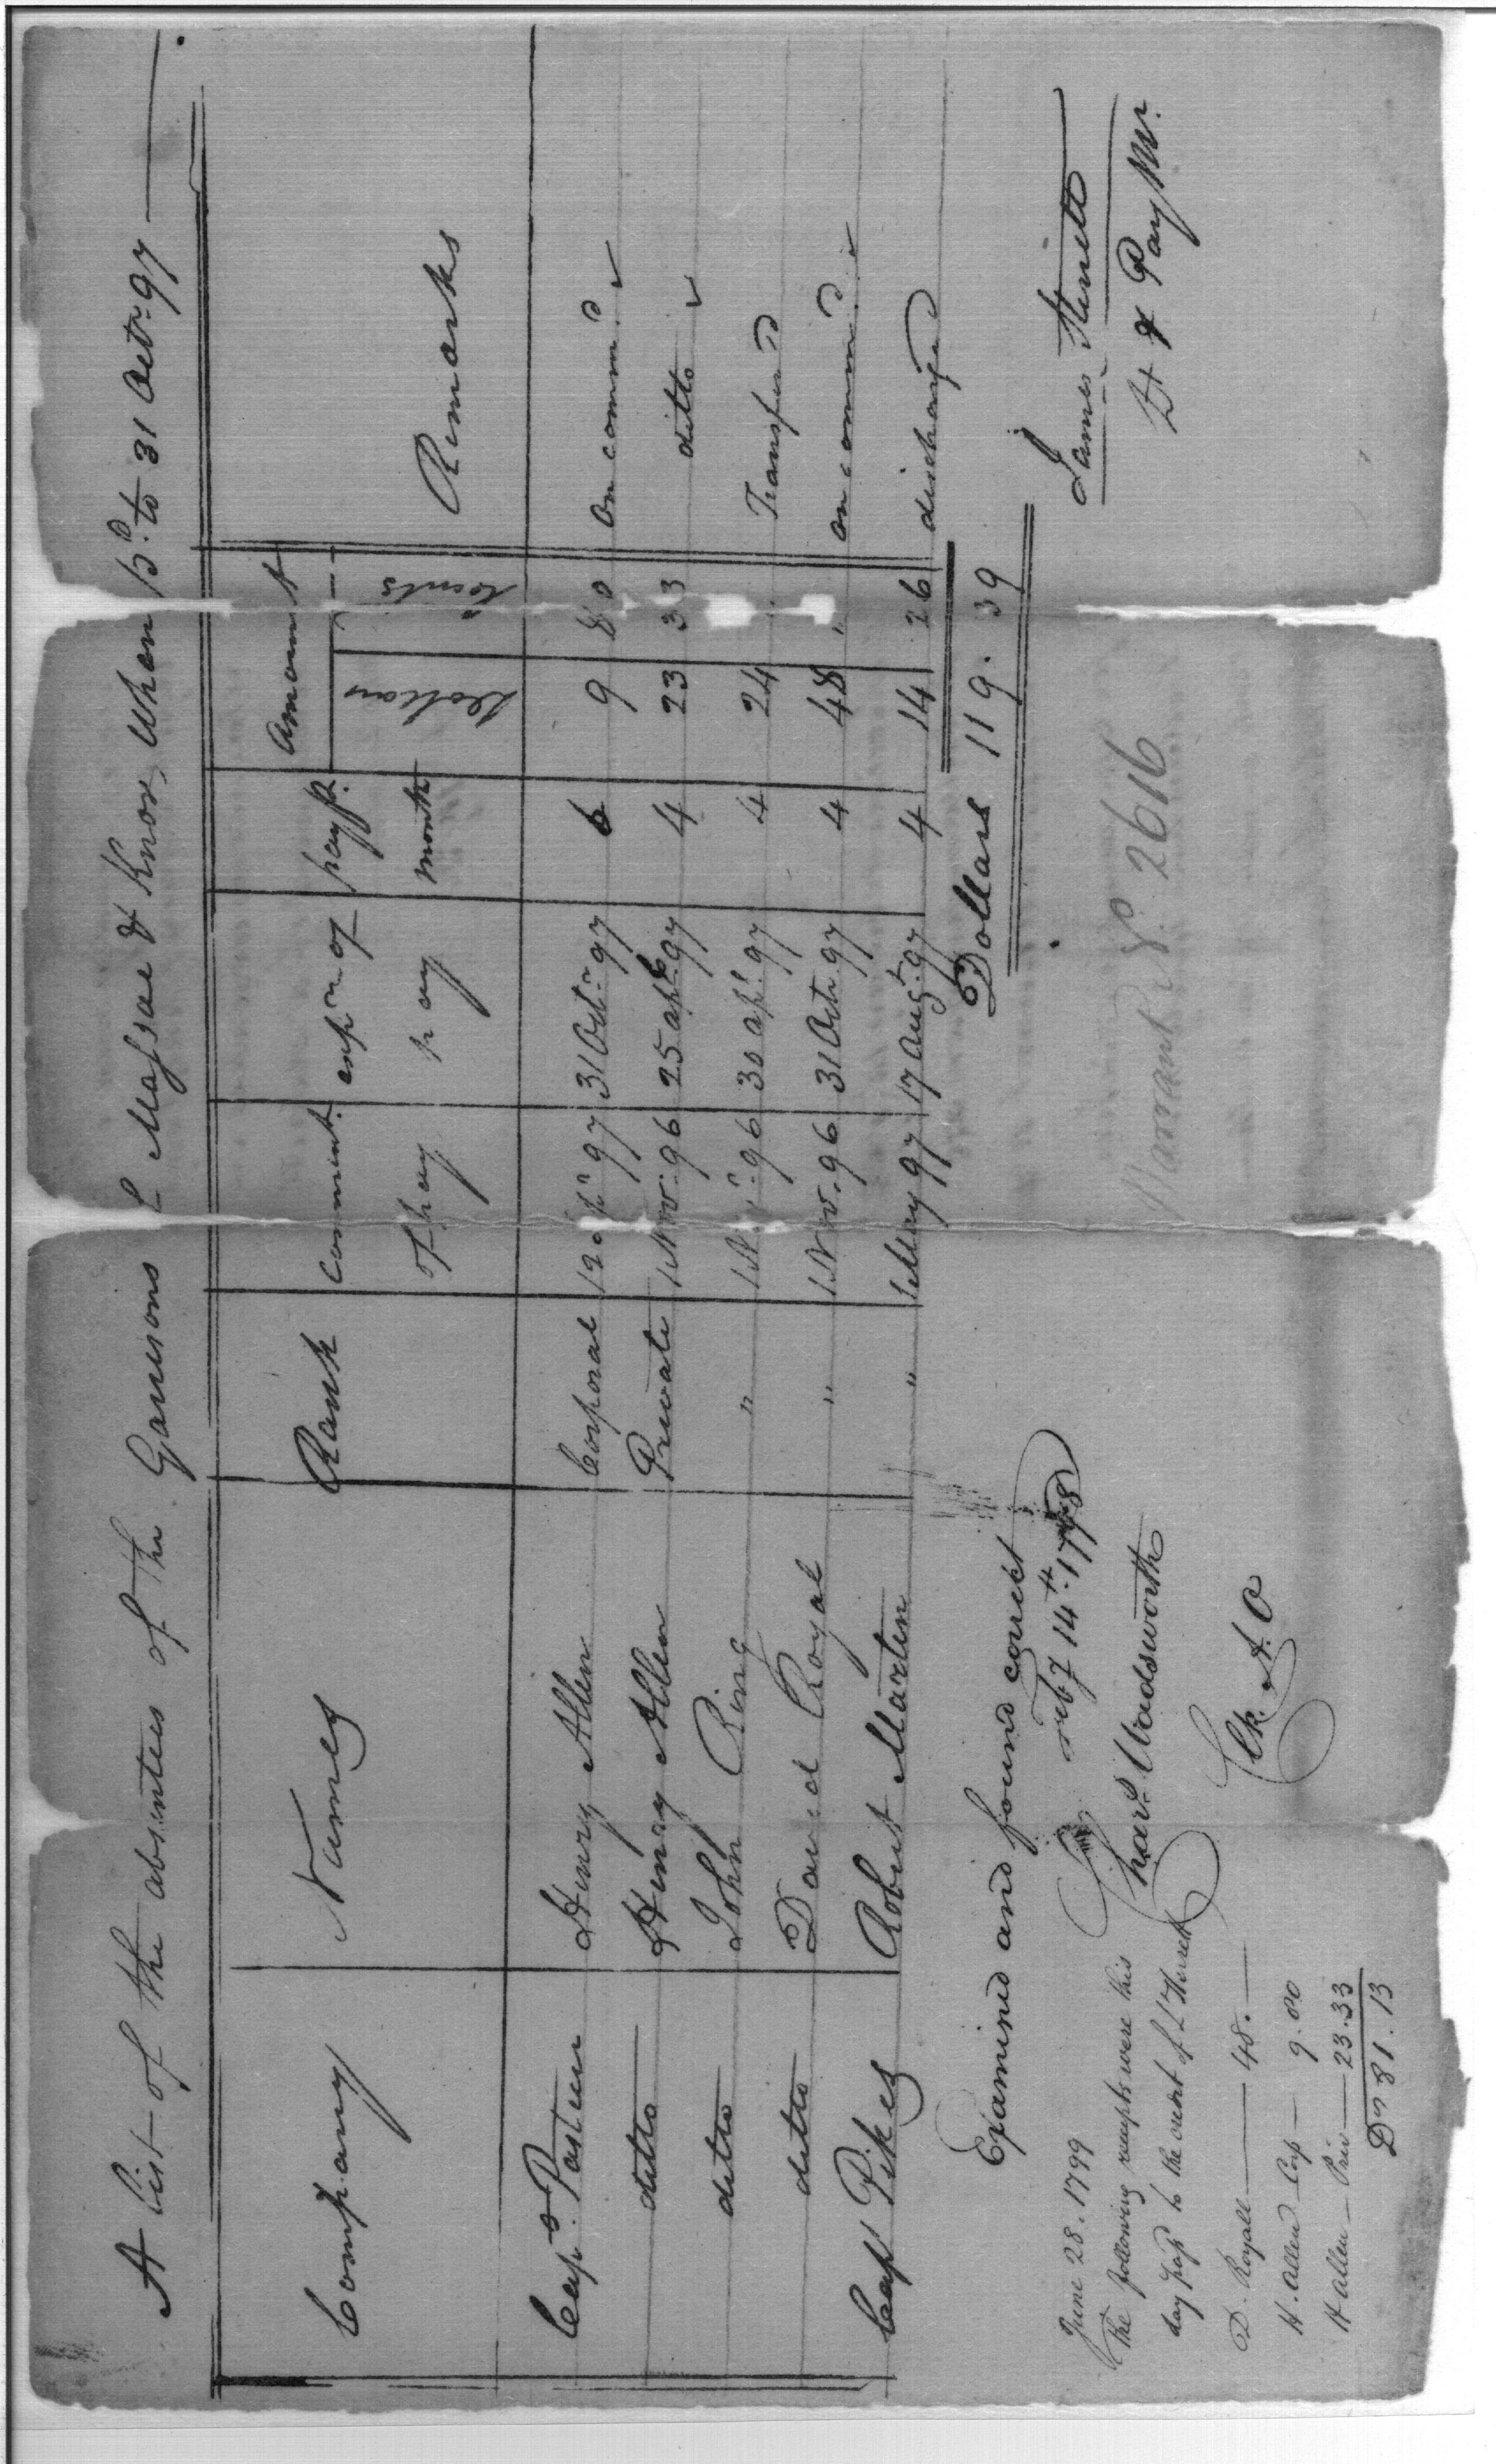 A List of the absentees of the Garrisons L Massac & Knox, when pd. to 31 Octr. 97
Company Names Rank Commenct. of pay expn. of pay pay pr. month Amount Dollars Cents Remarks
Capn. Pasteur Henry Allen Corporal 12 97 31 Octr. 97 6 9 80 On commd.
ditto Henry Allen Private 1 Nov. 96 25 apl. 97 4 23 33 ditto
ditto John Ring " 1 N 96 30 apl. 97 4 24 Transferd
ditto David Royal " 1 Nov. 96 31 Octr. 97 4 48 " on commd.
Capt Pikes Robert Martin " 1 May 97 17 Augt. 97 4 14 26 discharged
Dollars 119. 39
Examined and found correct
Feby 14th. 1798
Charl. Wadsworth
Clk. A. O
James Sterrett
Lt & Pay Mr.
Warrant No. 2616
June 28. 1799
The following receipts were this
day pass'd to the credit of Lt Sterrett
D. Royall 48.
H. Allen Corp 9. 80
H Allen Priv 23. 33
Drs 81. 13